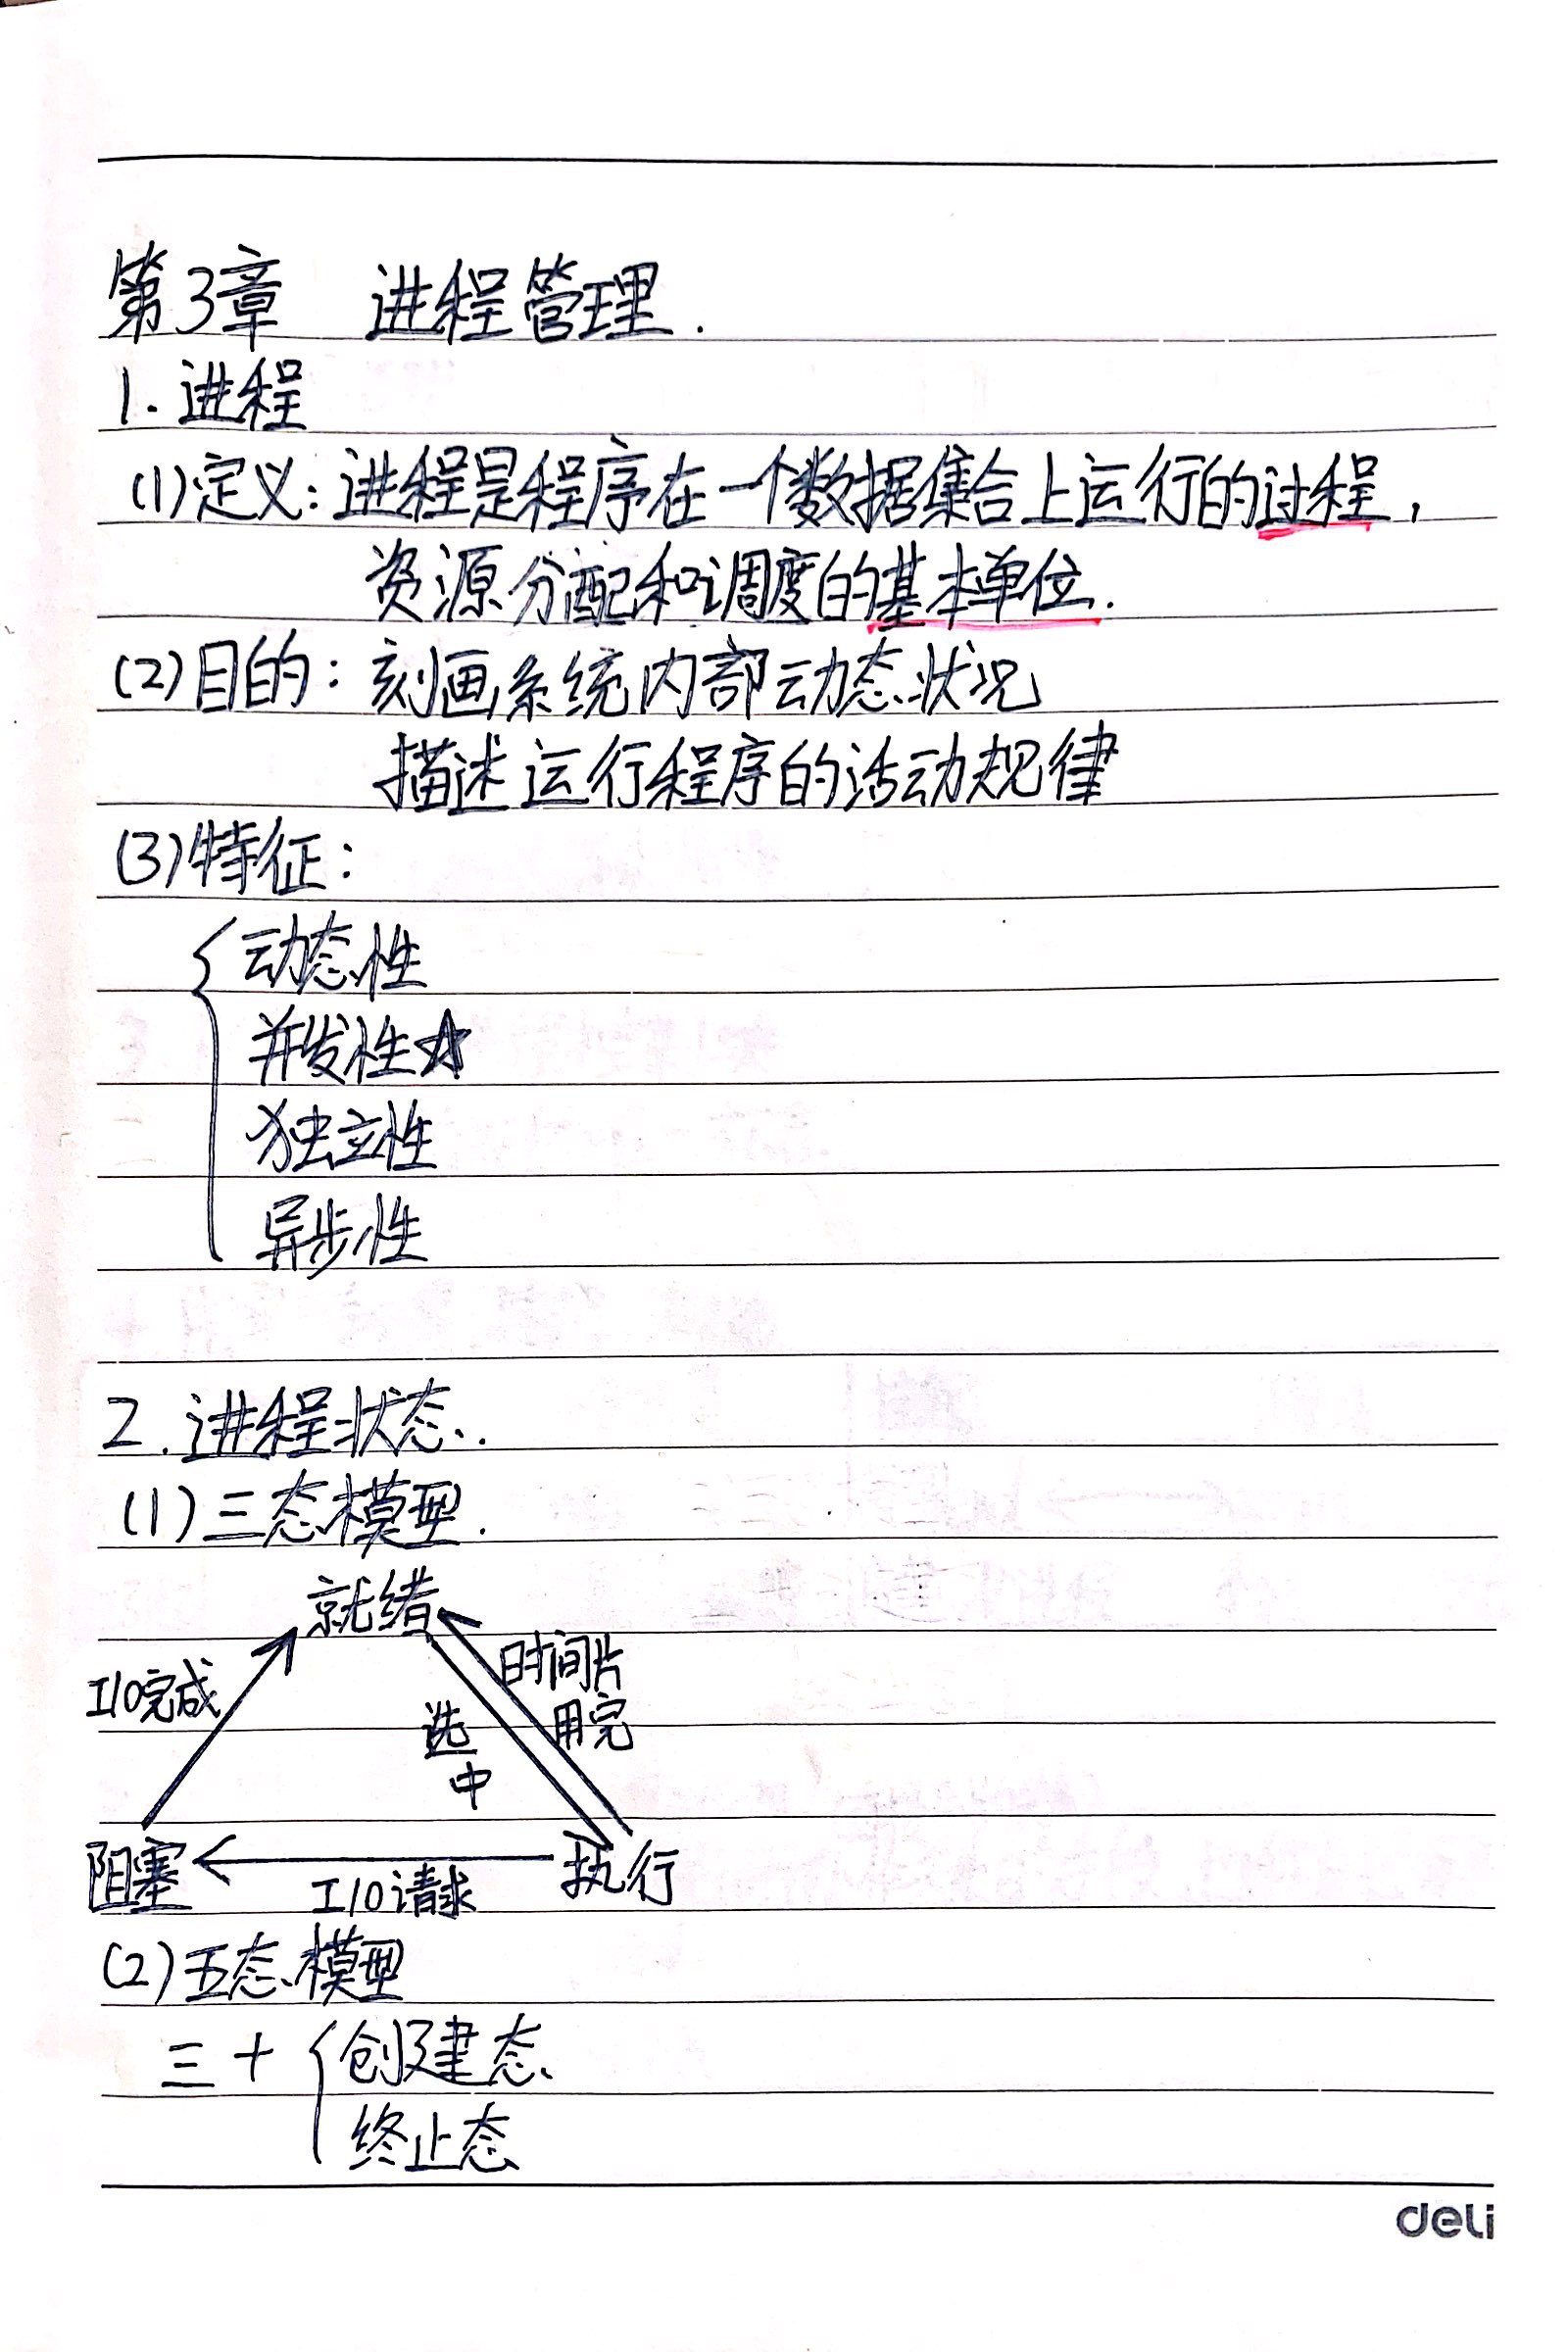 第3章 进程管理.
1. 进程
(1)定义:进程是程序在一个数据集合上运行的过程,
资源分配和调度的基本单位.
(2)目的: 刻画系统内部动态状况
描述运行程序的活动规律
(3)特征:
动态性
并发性☆
独立性
异步性
2. 进程状态.
(1)三态模型.
就绪
I/O完成
时间片
用完
选
中
阻塞
执行
I/O请求
(2)五态模型
三 + { 创建态
终止态
deli